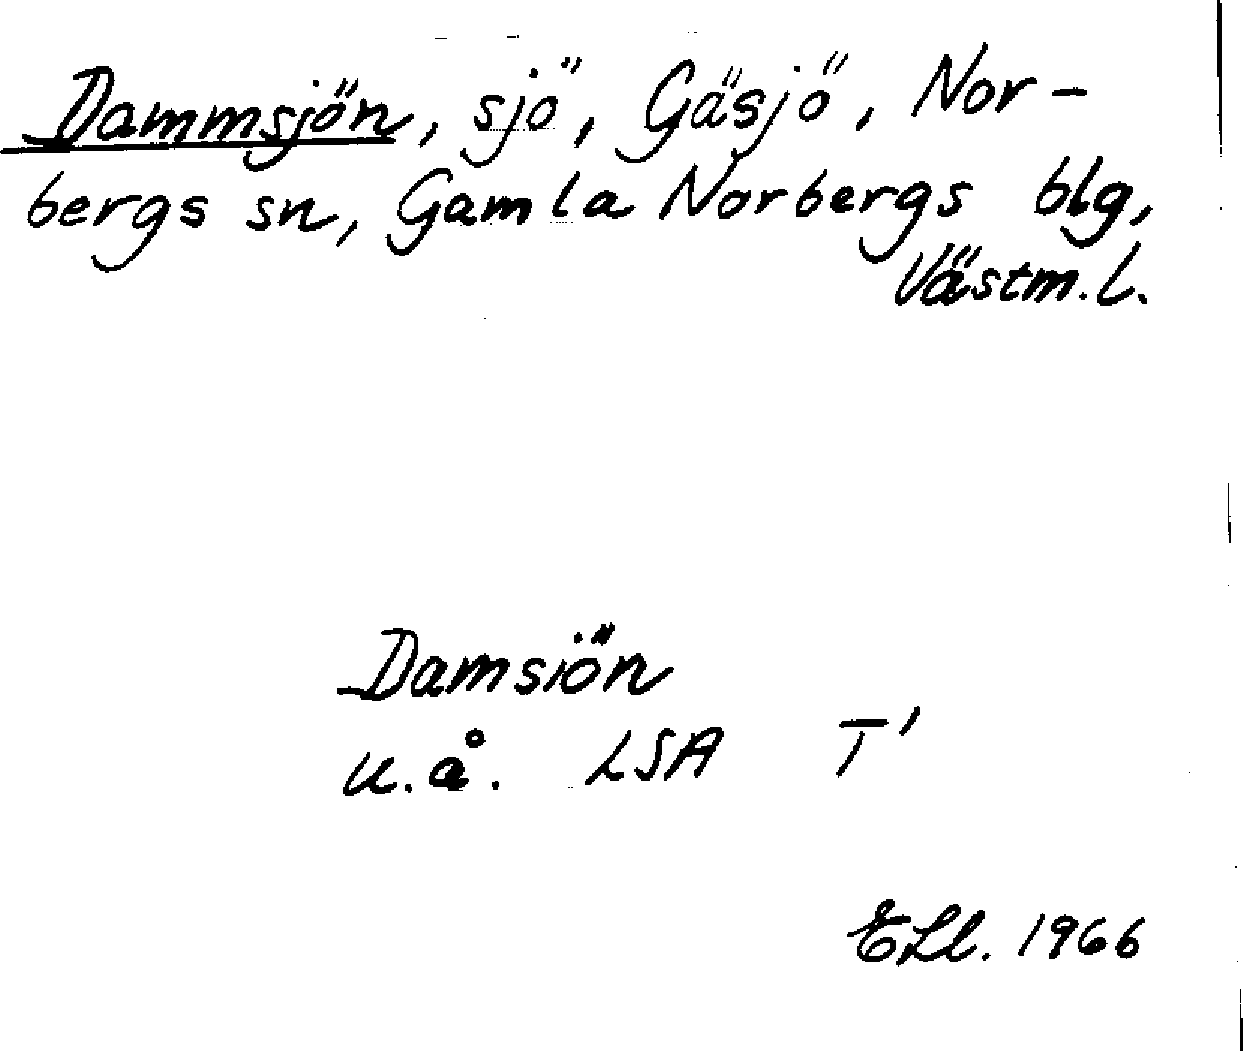 Dammsjön, sjö, Gäsjö, Nor-
bergs sn, Gamla Norbergs blg,
Västm.l.
Damsiön
u.å. LSA T'
ELl. 1966